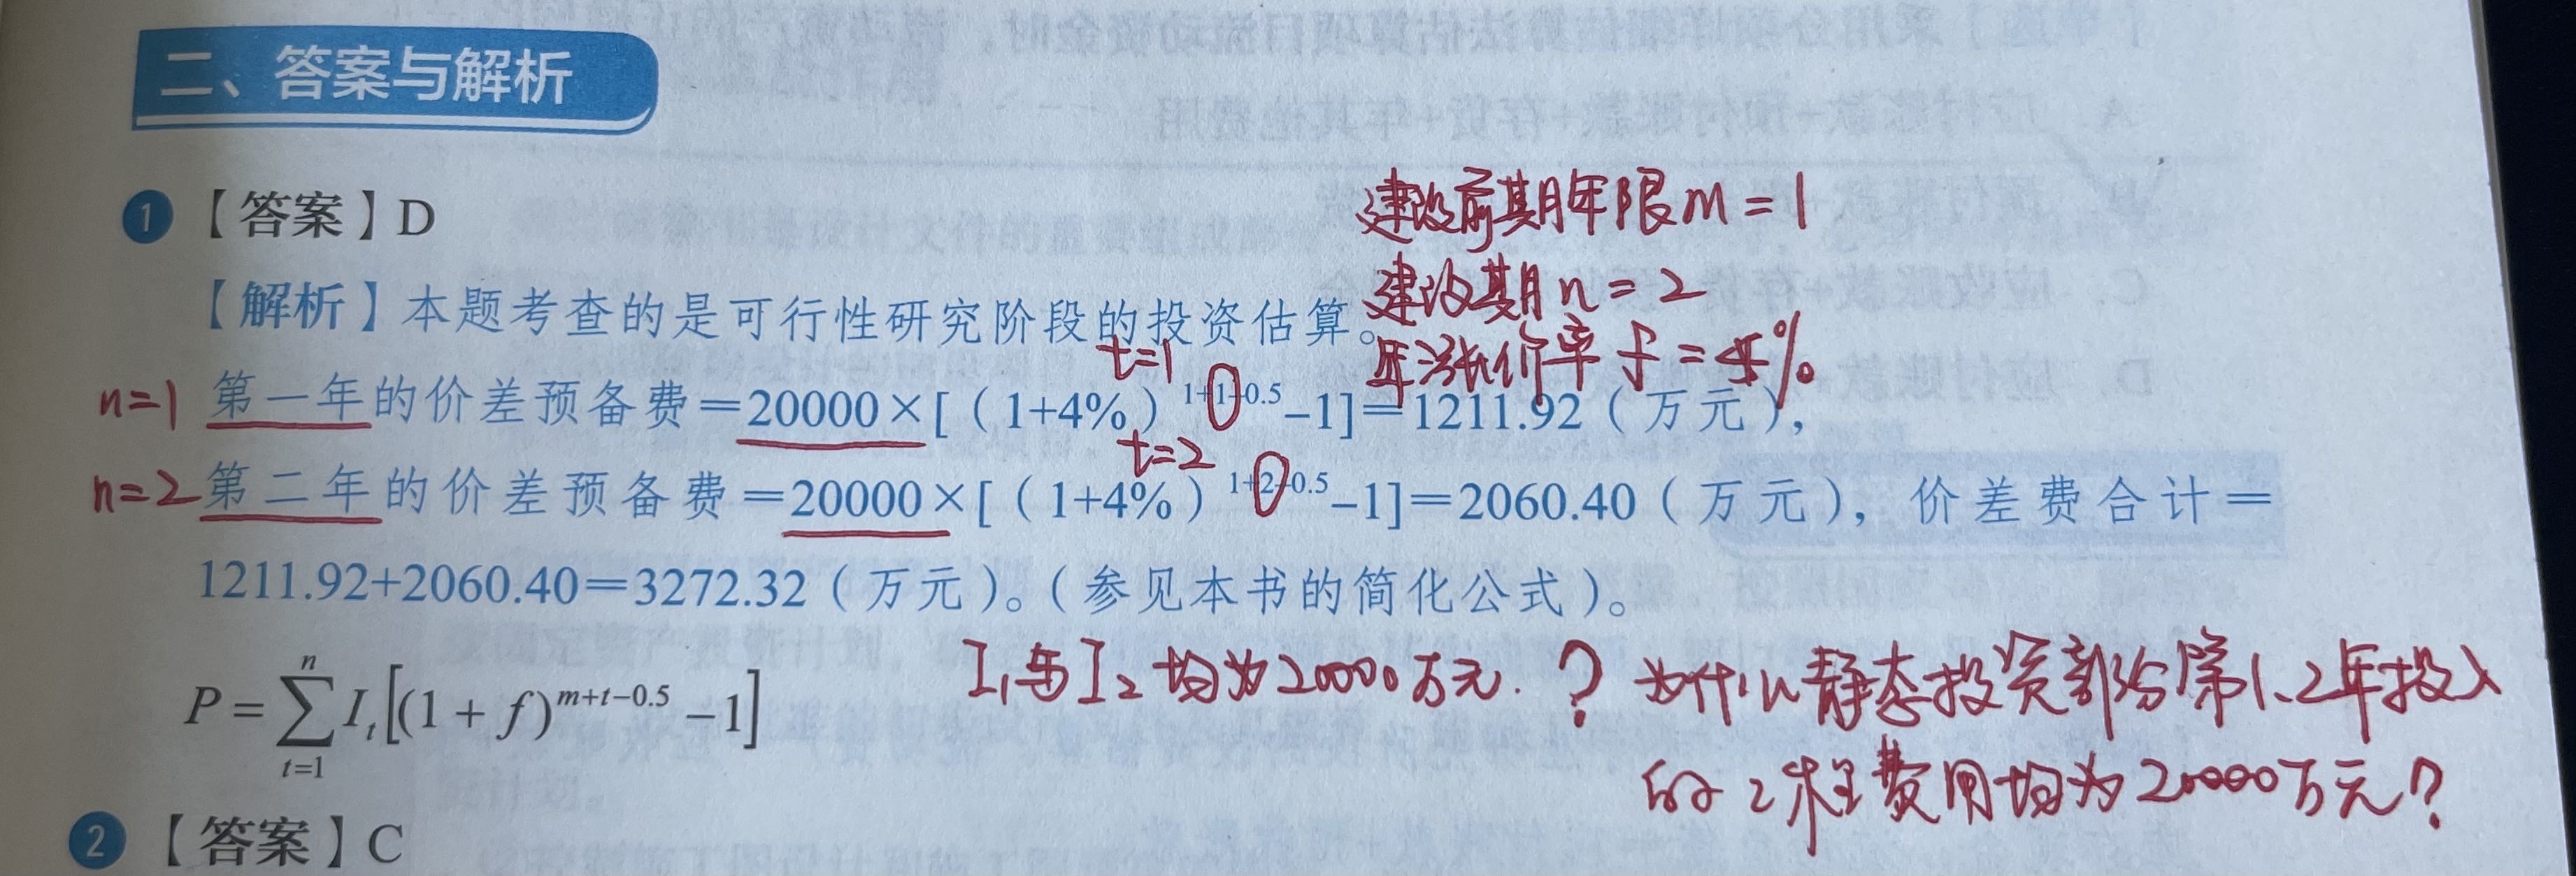 二、答案与解析
1【答案】D
建设前期年限m=1
建设期n=2
【解析】本题考查的是可行性研究阶段的投资估算。
年涨价率f=4%
t=1
n=1 第一年的价差预备费=20000×[(1+4%)1+1-0.5-1]=1211.92(万元),
t=2
n=2 第二年的价差预备费=20000×[(1+4%)1+2-0.5-1]=2060.40(万元),价差费合计=
1211.92+2060.40=3272.32(万元)。(参见本书的简化公式)。
I₁与I₂均为20000万元.? 为什么静态投资部分第1、2年投入
的工程费用均为20000万元?
P=∑ⁿₜ₌₁Iₜ[(1+f)^{m+t-0.5}-1]
2【答案】C